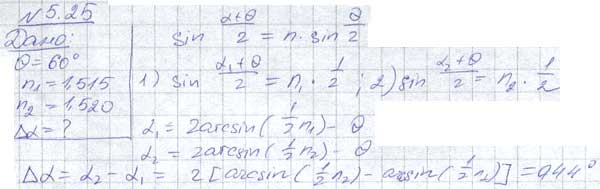 №5.25
Дано:
θ=60°
n₁=1,515
n₂=1,520
Δα=?
sin (α+θ)/2 = n·sin θ/2
1) sin (α₁+θ)/2 = n₁·1/2 ; 2) sin (α₂+θ)/2 = n₂·1/2
α₁ = 2arcsin(1/2 n₁) − θ
α₂ = 2arcsin(1/2 n₂) − θ
Δα = α₂ − α₁ = 2[arcsin(1/2 n₂) − arcsin(1/2 n₁)] = 0,44°